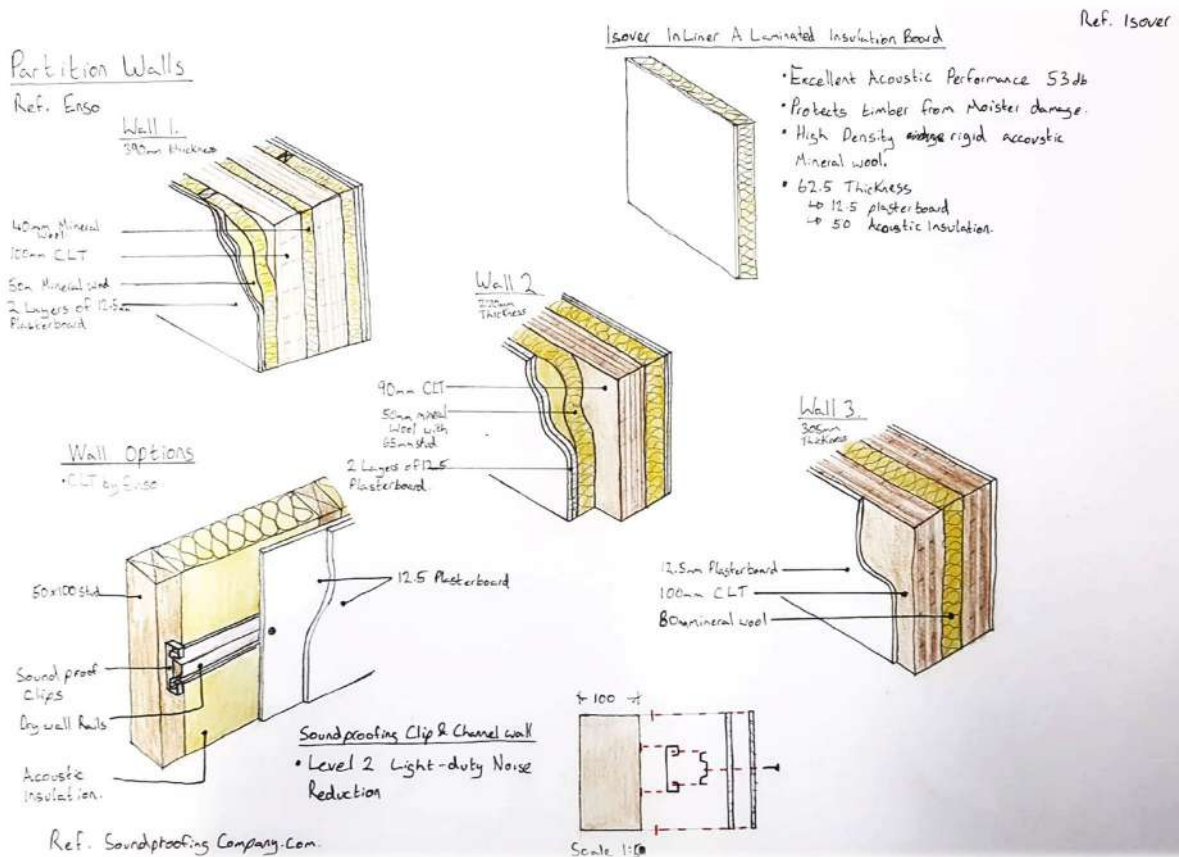 Ref. Isover
Partition Walls
Ref. Enso
Wall 1.
390mm thickness
40mm Mineral
Wool
100mm CLT
50m Mineral wool
2 Layers of 12.5mm
Plasterboard.
Isover InLiner A Laminated Insulation Board
• Excellent Acoustic Performance 53db
• Protects timber from Moister damage.
• High Density rigid accoustic
Mineral wool.
• 62.5 Thickness
↳ 12.5 plasterboard
↳ 50 Acoustic Insulation.
Wall 2
Thickness
90mm CLT
50mm mineral
Wool with
65mm stud
2 Layers of 12.5
Plasterboard.
Wall 3.
305mm
Thickness
12.5mm Plasterboard
100mm CLT
80mm mineral wool
Wall Options
• CLT by Enso
50x100 stud
12.5 Plasterboard
Sound proof
Clips
Dry wall Rails
Acoustic
Insulation.
Soundproofing Clip & Channel wall
• Level 2 Light-duty Noise
Reduction
100
Scale 1:
Ref. Soundproofing Company.com.